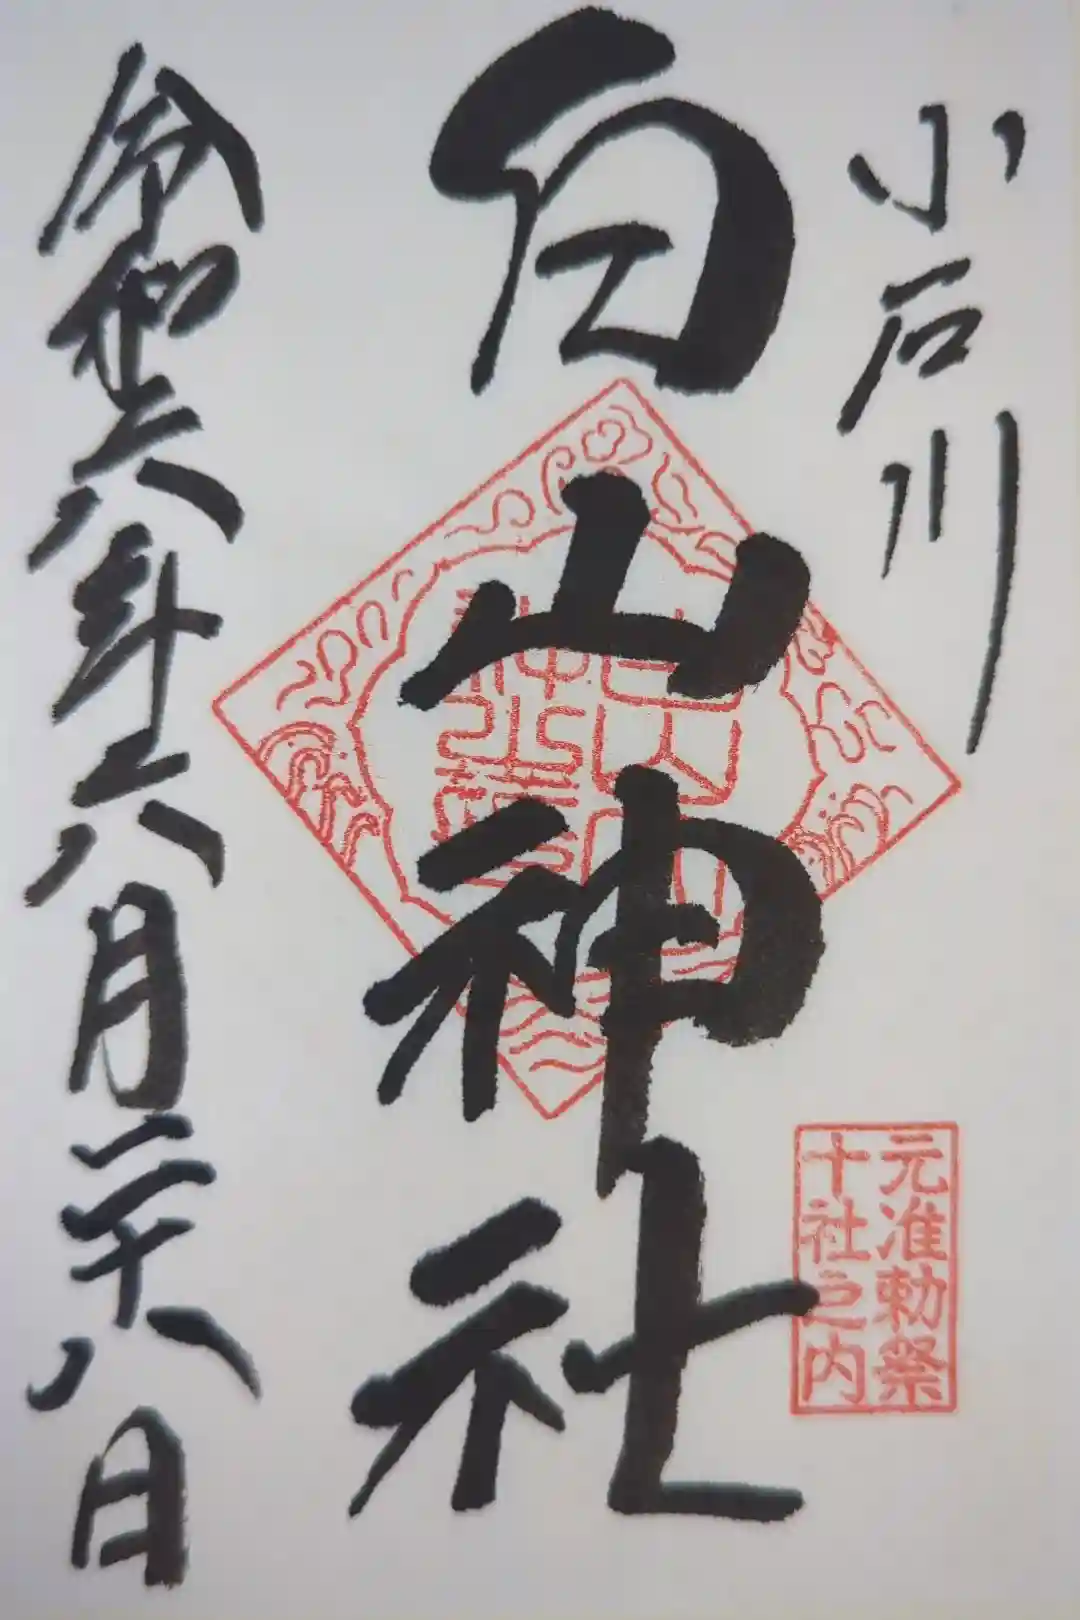 小石川
元准勅祭
十社之内
白山神社
令和六年六月二十八日